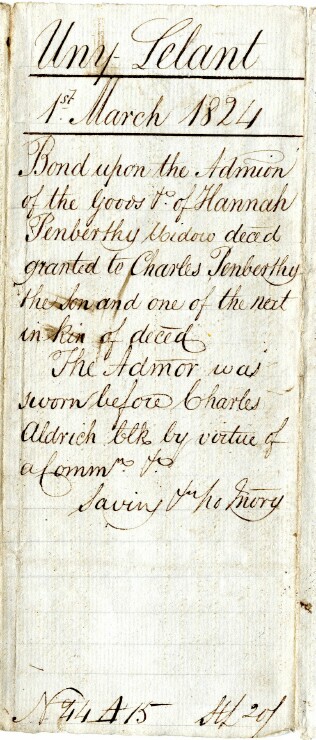 Uny Lelant
1st March 1824
Bond upon the Admion
of the Goods &c. of Hannah
Penberthy Widow deced
granted to Charles Penberthy
the Son and one of the next
in kin of deced
The Admor was
sworn before Charles
Aldrich Clk by virtue of
a Commn. &c.
Saving
N 44 A 15